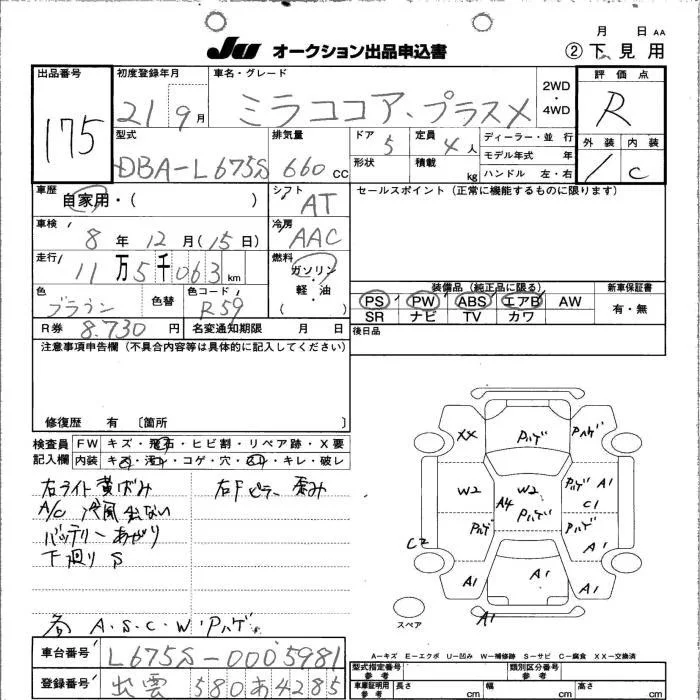 月 日 AA
JU オークション出品申込書 ② 下見用
出品番号 初度登録年月 車名・グレード 2WD・4WD 評価点
175 21 9月 ミラココア、プラスX R
型式 排気量 ドア 定員 ディーラー・並 行 外装 内装
DBA-L675S 660 CC 5 4人 モデル年式 年 1 C
形状 積載 kg ハンドル 左・右
車歴 シフト セールスポイント(正常に機能するものに限ります)
自家用・( ) AT
車検 冷房
8年 12月(15日) AAC
走行 燃料
11万5千063km ガソリン・軽・油 ( )
装備品(純正品に限る) 新車保証書
色 色替 色コード
ブラウン R59
PS PW ABS エアB AW 有・無
SR ナビ TV カワ
R券 8.730円 名変通知期限 月 日
後日品
注意事項申告欄(不具合内容等は具体的に記入してください)
修復歴 有 〔箇所 〕
検査員記入欄 FW キズ・飛石・ヒビ割・リペア跡・X要
内装 キズ・汚れ・コゲ・穴・キレ・破レ
右ライト黄ばみ 右Fピラー歪み
A/C 冷風出ない
バッテリーあがり
下廻りS
各 A.S.C.W.Pハゲ
XX Pハゲ Pハゲ
W2 A4 W2 Pハゲ Pハゲ A1 C1
Pハゲ Pハゲ A1
C2
A1 A1 A1
A1
スペア
A-キズ E-エクボ U-凹み W-補修跡 S-サビ C-腐食 XX-交換済
車台番号 L675S-0005981
登録番号 出雲 580 あ 4285
型式指定番号 参考 類別区分番号 参考
車庫証明用 参考 長さ cm 幅 cm 高さ cm